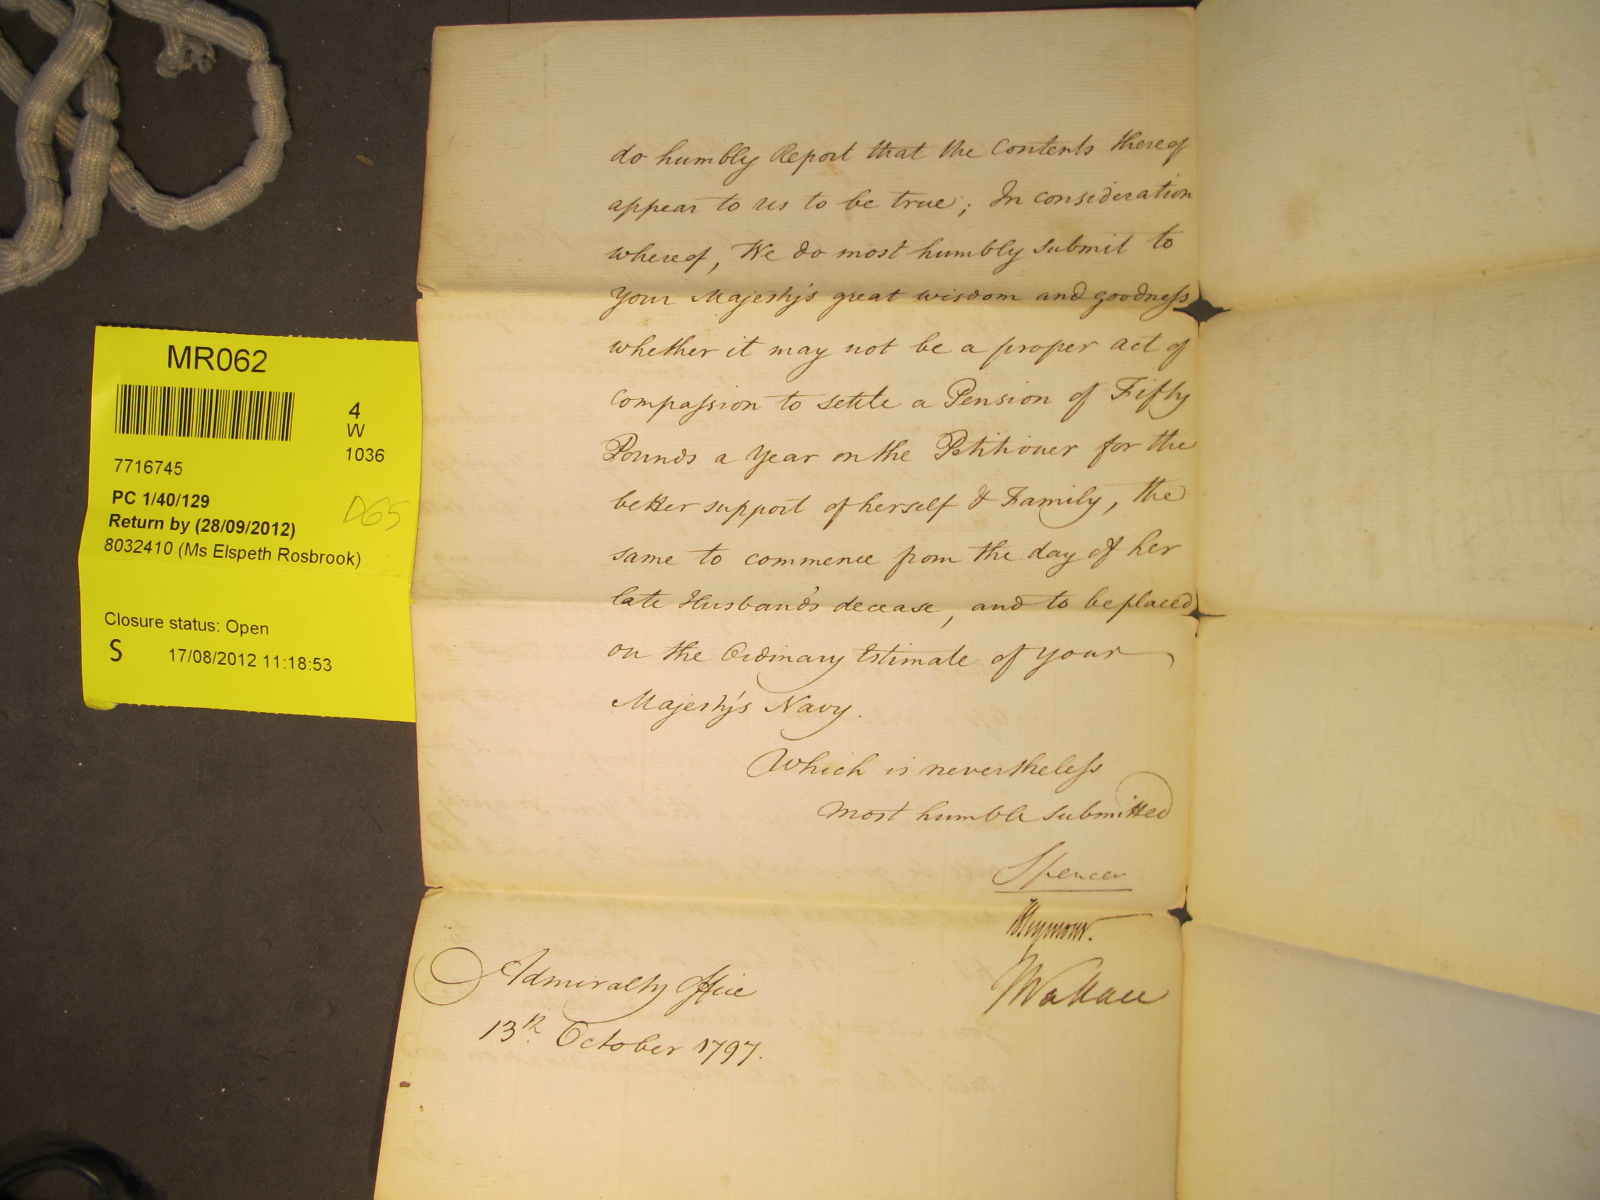 MR062
4
W
1036
7716745
PC 1/40/129
DG5
Return by (28/09/2012)
8032410 (Ms Elspeth Rosbrook)
Closure status: Open
S
17/08/2012 11:18:53
do humbly Report that the Contents thereof
appear to us to be true; In consideration
whereof, We do most humbly submit to
Your Majesty's great wisdom and goodness
whether it may not be a proper act of
Compassion to settle a Pension of Fifty
Pounds a Year on the Petitioner for the
better support of herself & Family, the
same to commence from the day of her
late Husband's decease, and to be placed
on the Ordinary Estimate of Your
Majesty's Navy.
Which is nevertheless
most humble submitted
Spencer
HSeymour.
JWallace
Admiralty Office
13th. October 1797.